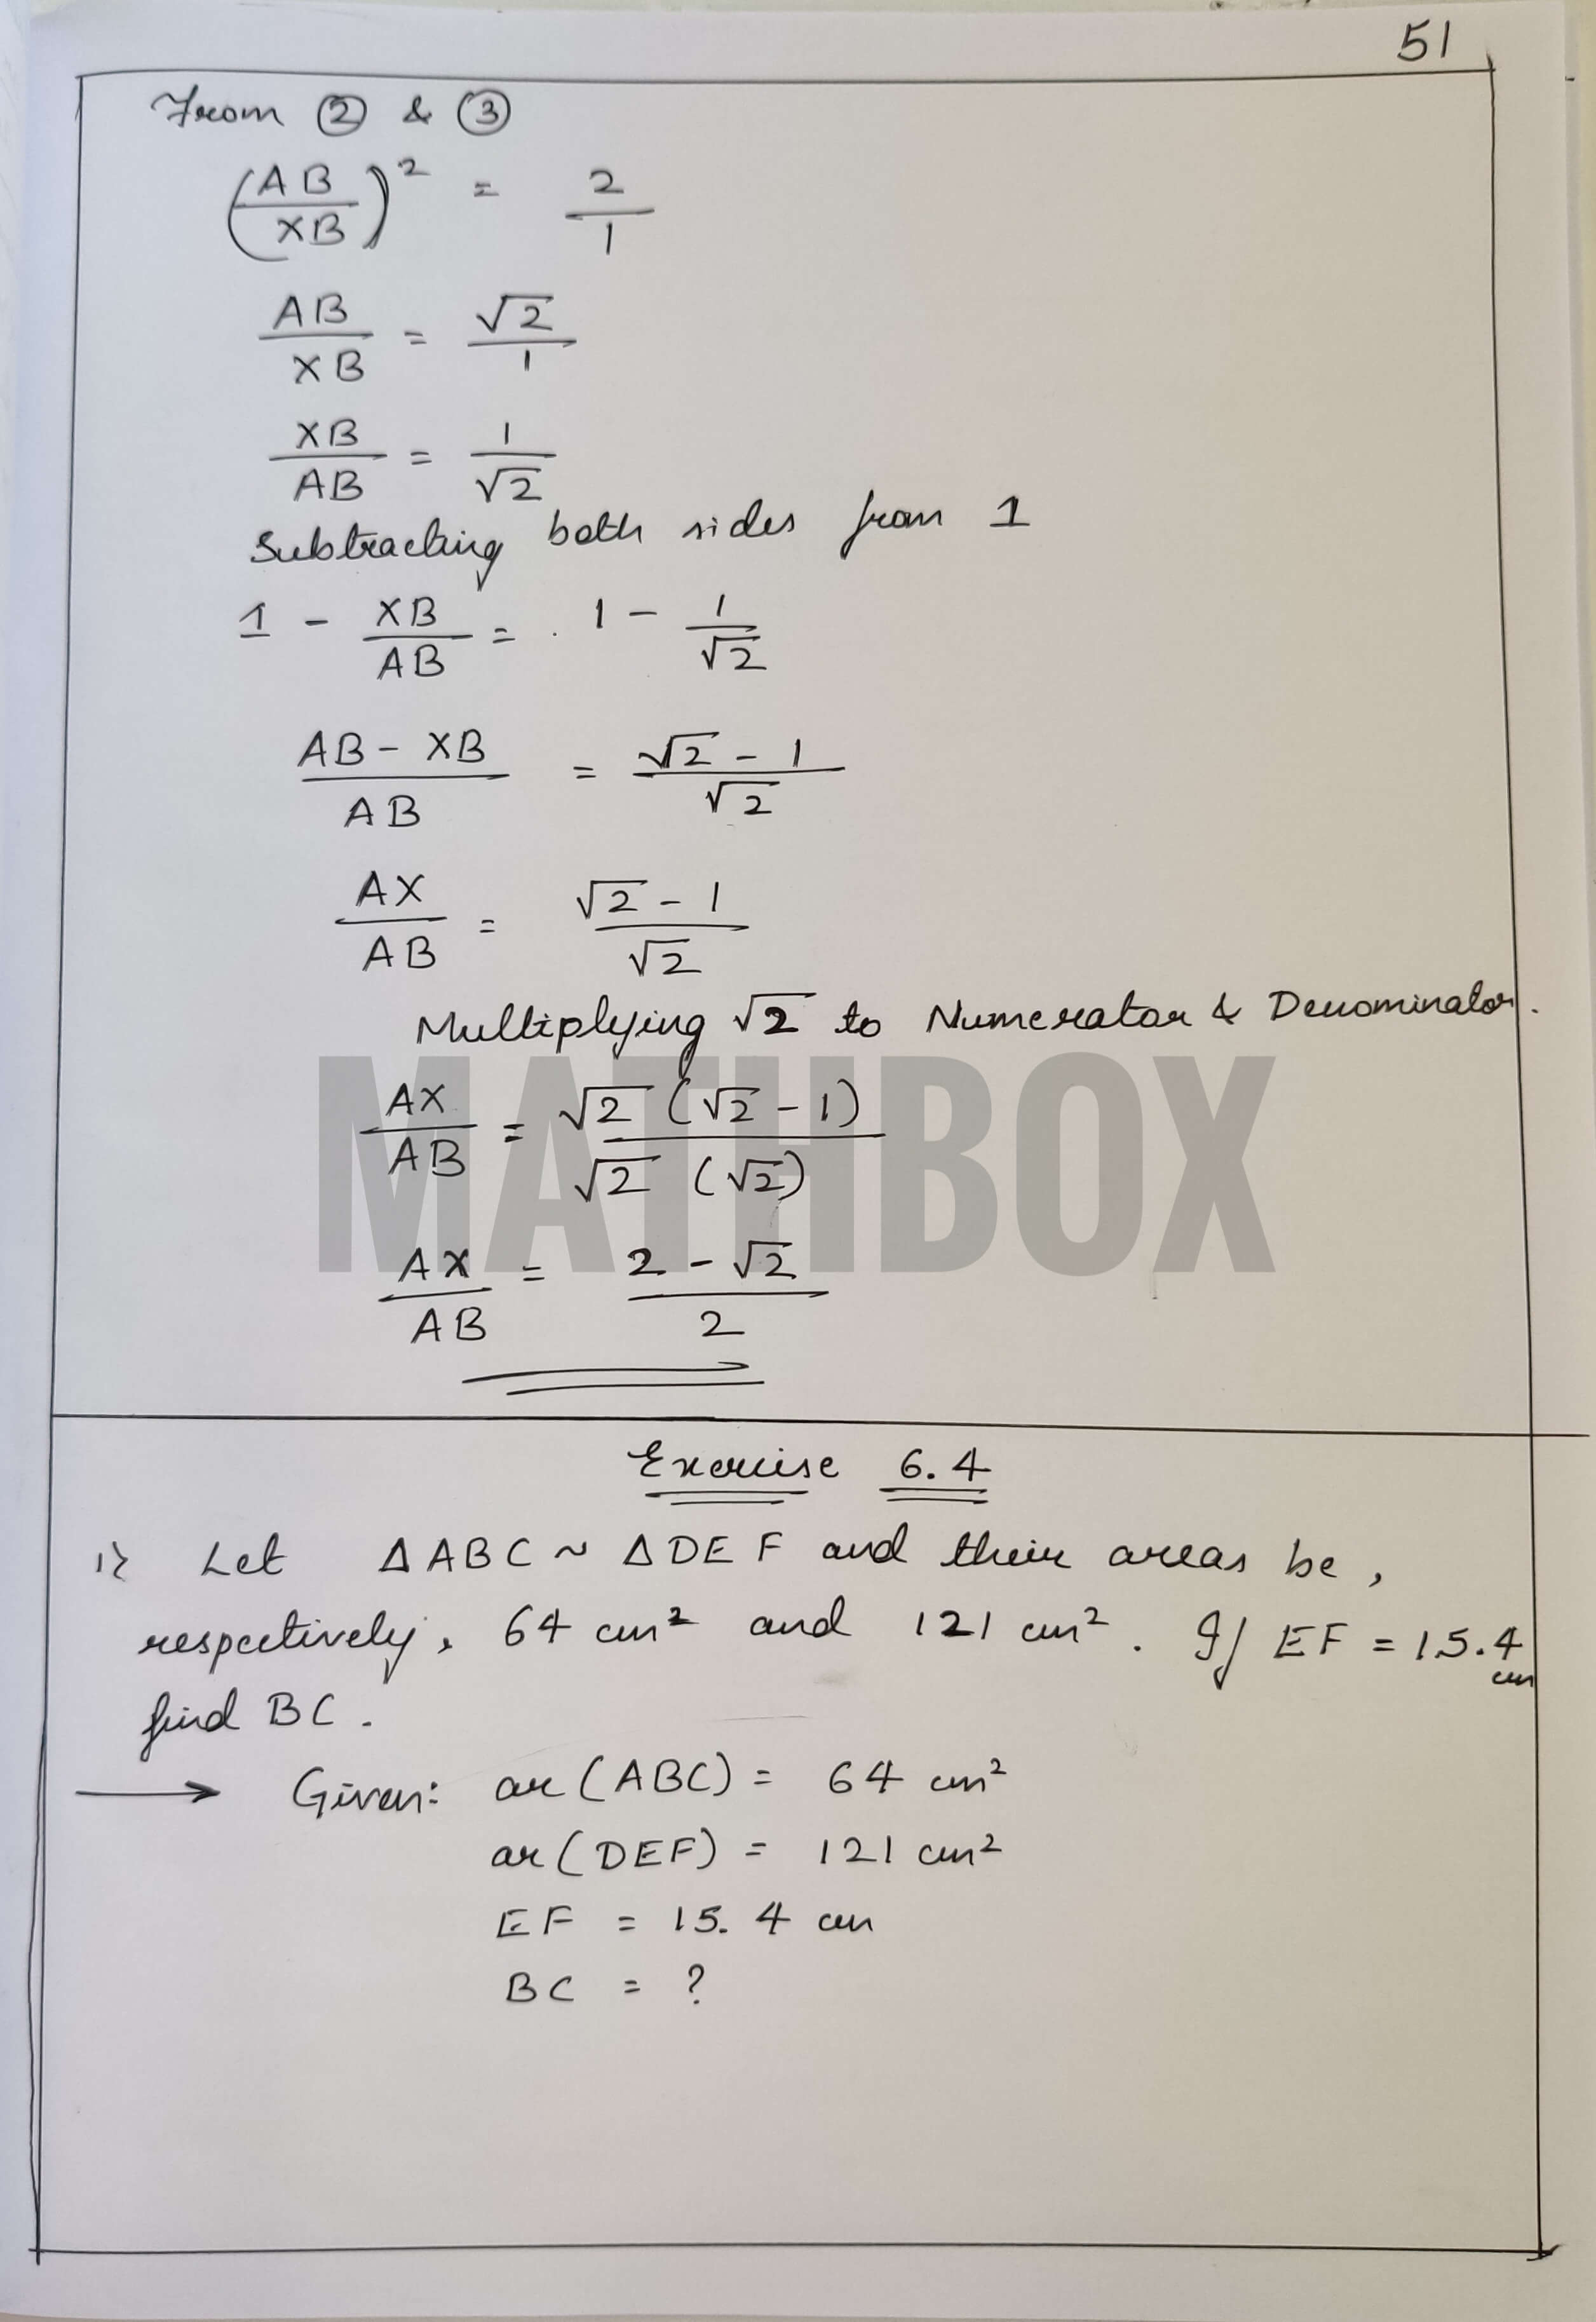 51
From ② & ③
(AB/XB)² = 2/1
AB/XB = √2/1
XB/AB = 1/√2
Subtracting both sides from 1
1 - XB/AB = 1 - 1/√2
AB - XB/AB = √2 - 1/√2
AX/AB = √2 - 1/√2
Multiplying √2 to Numerator & Denominator.
AX/AB = √2 (√2 - 1)/√2 (√2)
MATHBOX
AX/AB = 2 - √2/2
Exercise 6.4
1) Let ΔABC ~ ΔDEF and their areas be,
respectively, 64 cm² and 121 cm². If EF = 15.4 cm
find BC.
→ Given: ar (ABC) = 64 cm²
ar (DEF) = 121 cm²
EF = 15.4 cm
BC = ?